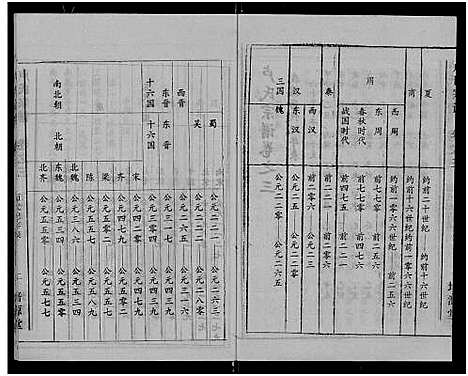 夏 约前二十一世纪 约前十六世纪
商 约前十六世纪 约前一〇六六世纪
周 西周 约前一〇六六世纪 前七七一
东周 前七七〇 前二五六
春秋时代 前七七〇 前四七六
战国时代 前四七五 前二二一
秦 前二二一 前二〇六
汉 西汉 前二〇六 公元二三
东汉 公元二五 公元二二〇
三国 魏 公元二二〇 公元二六五
卢氏宗谱卷之三
蜀 公元二二一
吴 公元二二二 公元二八〇
西晋 公元二六五 公元三一六
东晋 东晋 公元三一七 公元四二〇
十六国 十六国 公元三〇四 公元四三九
南北朝
宋 公元四二〇 公元四七九
齐 公元四七九 公元五〇二
梁 公元五〇二 公元五五七
陈 公元五五七 公元五八九
北朝
北魏 公元三八六 公元五三四
东魏 公元五三四 公元五五〇
北齐 公元五五〇 公元五七七